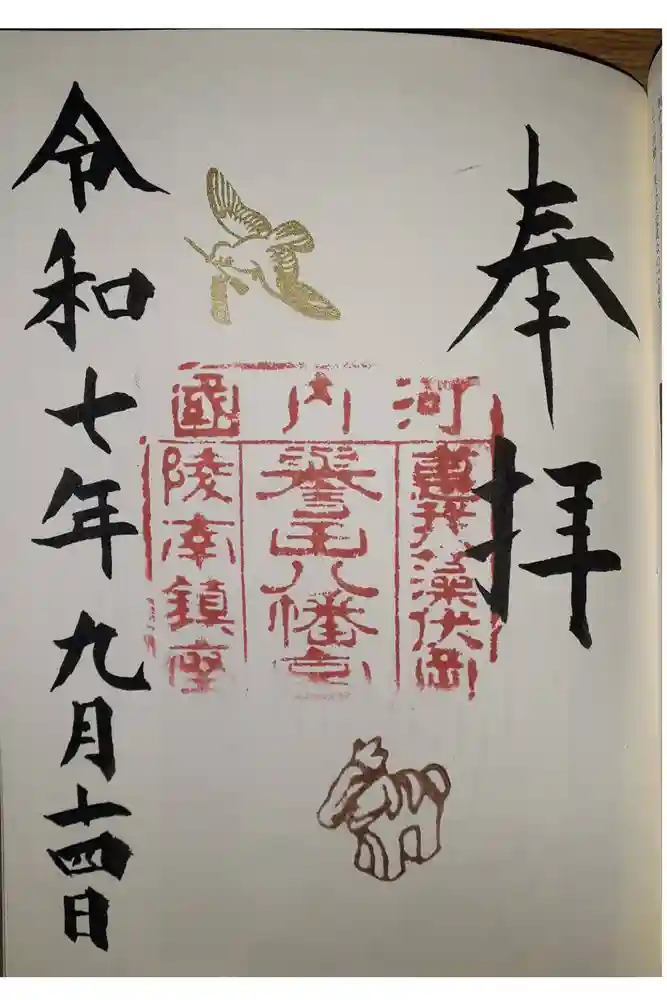 奉拝
河内國
惠我藻伏岡
譽田八幡宮
陵南鎮座
令和七年九月十四日